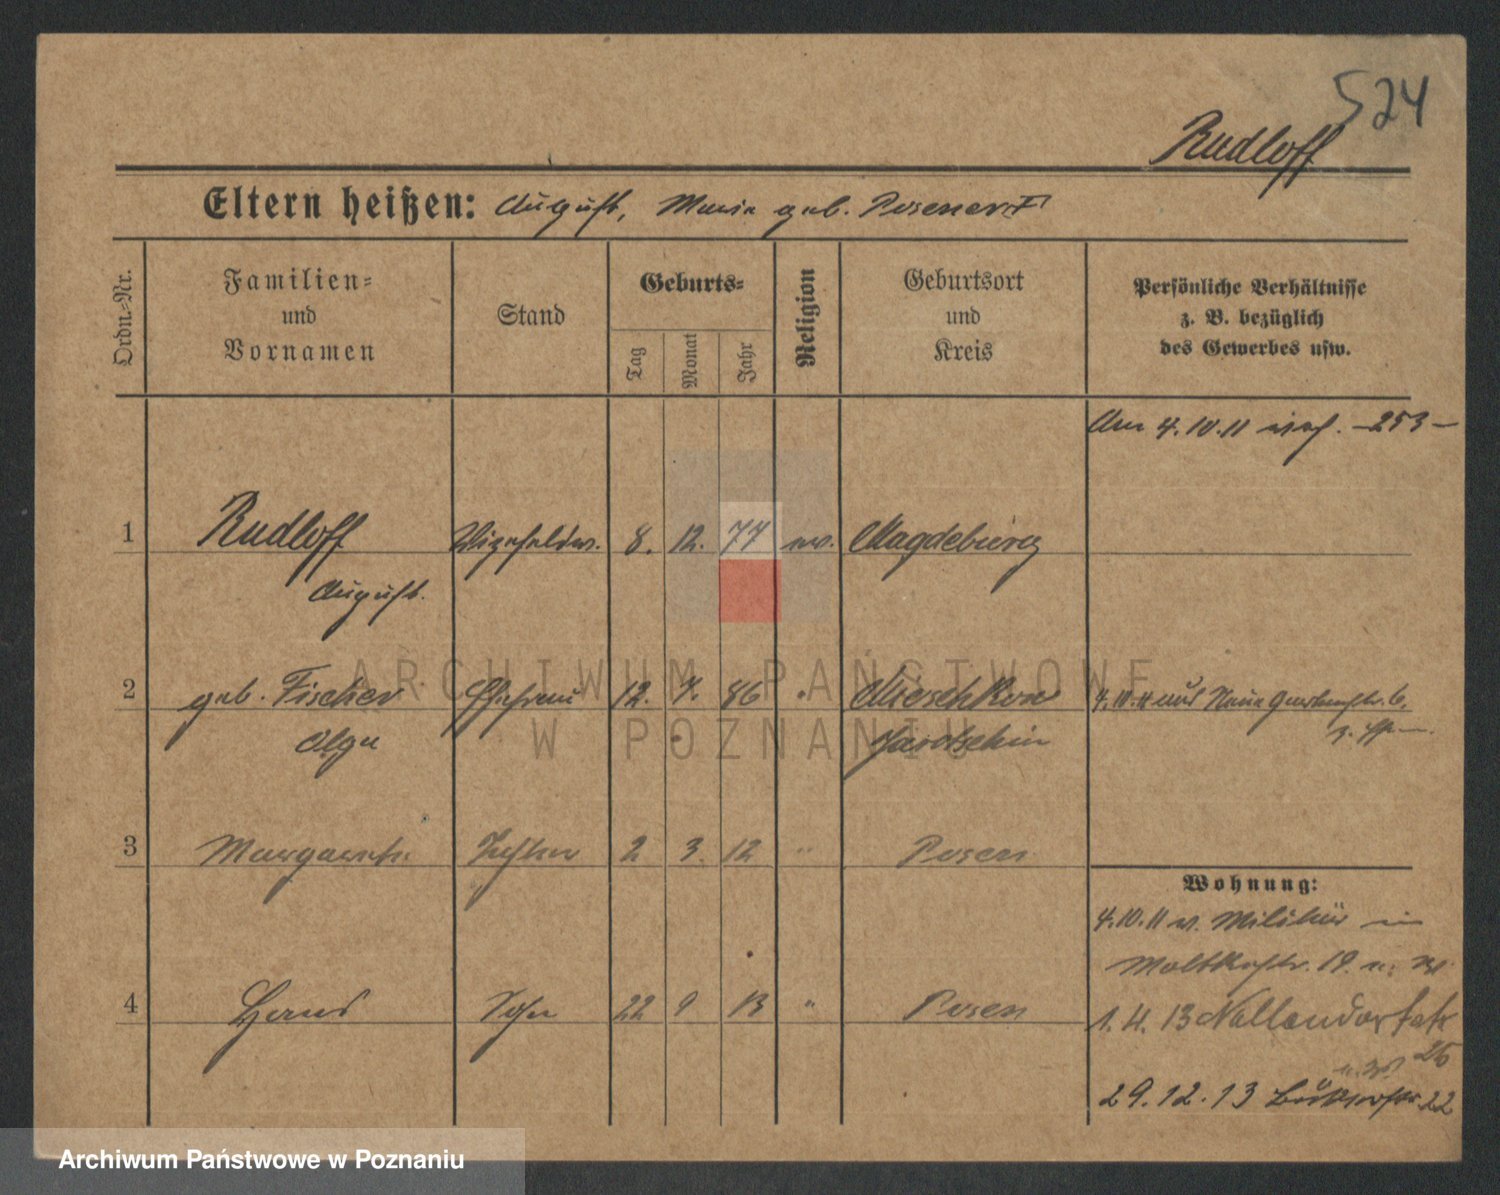 524
Rudloff
Eltern heißen: August, Maria geb. Posener
Ordn.-Nr.
Familien-
und
Vornamen
Stand
Geburts-
Tag
Monat
Jahr
Religion
Geburtsort
und
Kreis
Persönliche Verhältnisse
z. B. bezüglich
des Gewerbes usw.
Am 4.10.11 -253-
1 Rudloff Vizefeldw. 8. 12. 77 ev. Magdeburg
August.
2 geb. Fischer Ehefrau 12. 7. 86 Mieschkow 4.10.11 aus Neue Gartenstr. 6.
Olga Jarotschin
3 Margarete Tochter 2 3. 12 " Posen
Wohnung:
4.10.11 v. Militär in
Moltkestr. 19.
4 Hans Sohn 22 9 13 " Posen
1. 4. 13 Nollendorfstr
26
29.12.13 Bukerstr. 22
ARCHIWUM PAŃSTWOWE
W POZNANIU
Archiwum Państwowe w Poznaniu